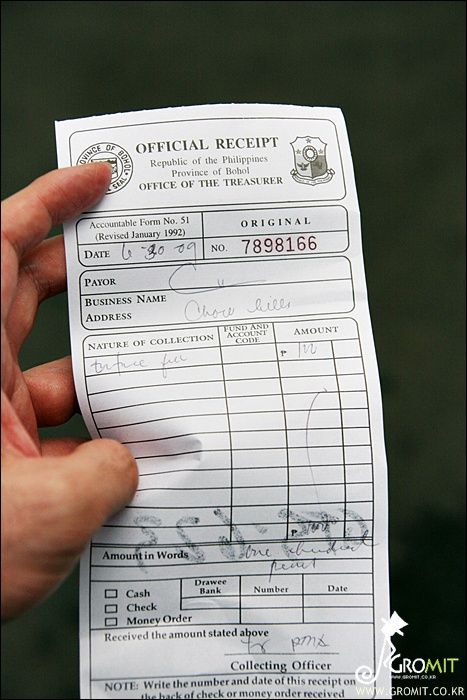 PROVINCE OF BOHOL
SEAL
OFFICIAL RECEIPT
Republic of the Philippines
Province of Bohol
OFFICE OF THE TREASURER
Accountable Form No. 51
(Revised January 1992)
ORIGINAL
DATE 6-30-09
NO. 7898166
PAYOR
BUSINESS NAME
ADDRESS
NATURE OF COLLECTION
FUND AND ACCOUNT CODE
AMOUNT
P
P
Amount in Words one hundred
Cash
Check
Money Order
Drawee Bank
Number
Date
Received the amount stated above
Collecting Officer
NOTE: Write the number and date of this receipt on
the back of check or money order received
GROMIT
WWW.GROMIT.CO.KR
WWW.GROMIT.CO.KR